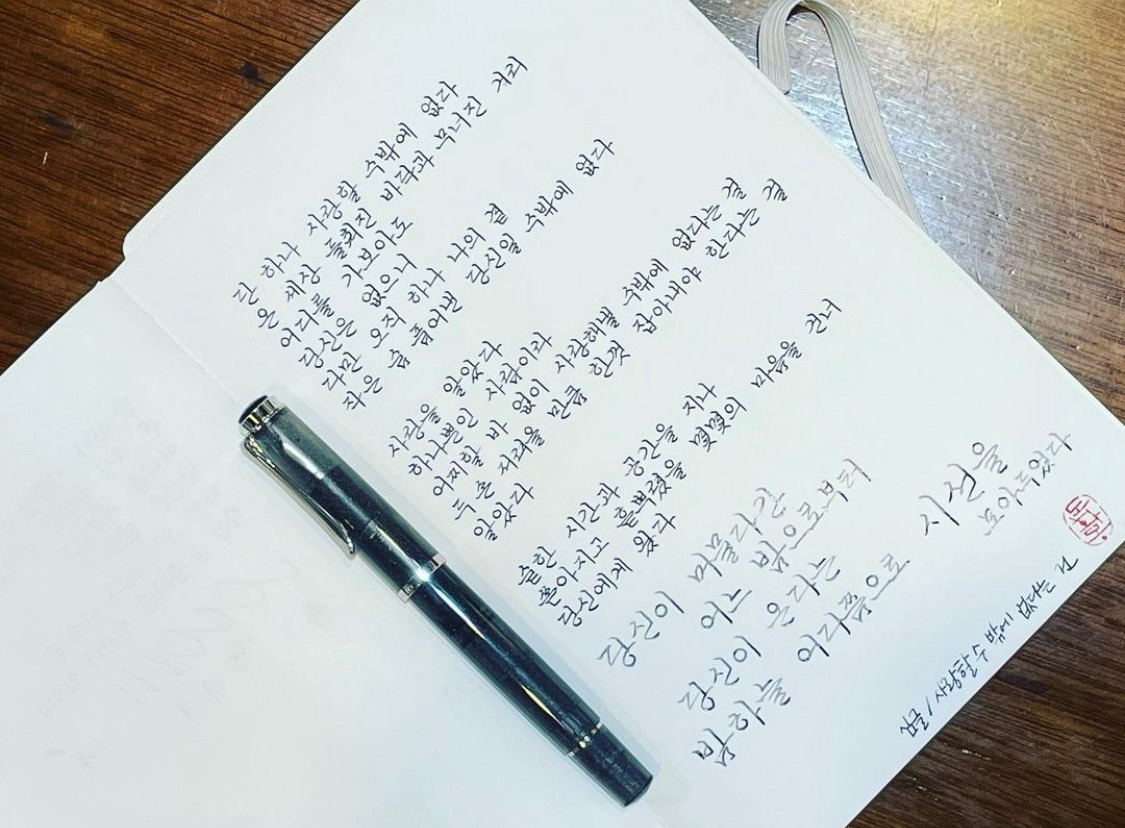 단 하나 사랑할 수밖에 없다
온 세상 들춰진 바다와 무너진 거리
어디를 가보아도
당신은 없으니
다만 오직 하나 나의 곁
작은 숨 품어낸 당신일 수밖에 없다
사랑을 알았다
하나뿐인 사람이라
어찌할 바 없이 사랑해낼 수밖에 없다는 걸
두 손 자리을 만큼 한껏 잡아내야 한다는 걸
알았다
숱한 시간과 공간을 지나
쏟아지고 흩뿌렸을 몇몇의 마음을 건너
당신에게 왔다
당신이 머물다간
어느 밤으로부터
당신이 온다는
밤하늘 어디쯤으로
시선을
모아두었다
사랑할 수 밖에 없다는 건